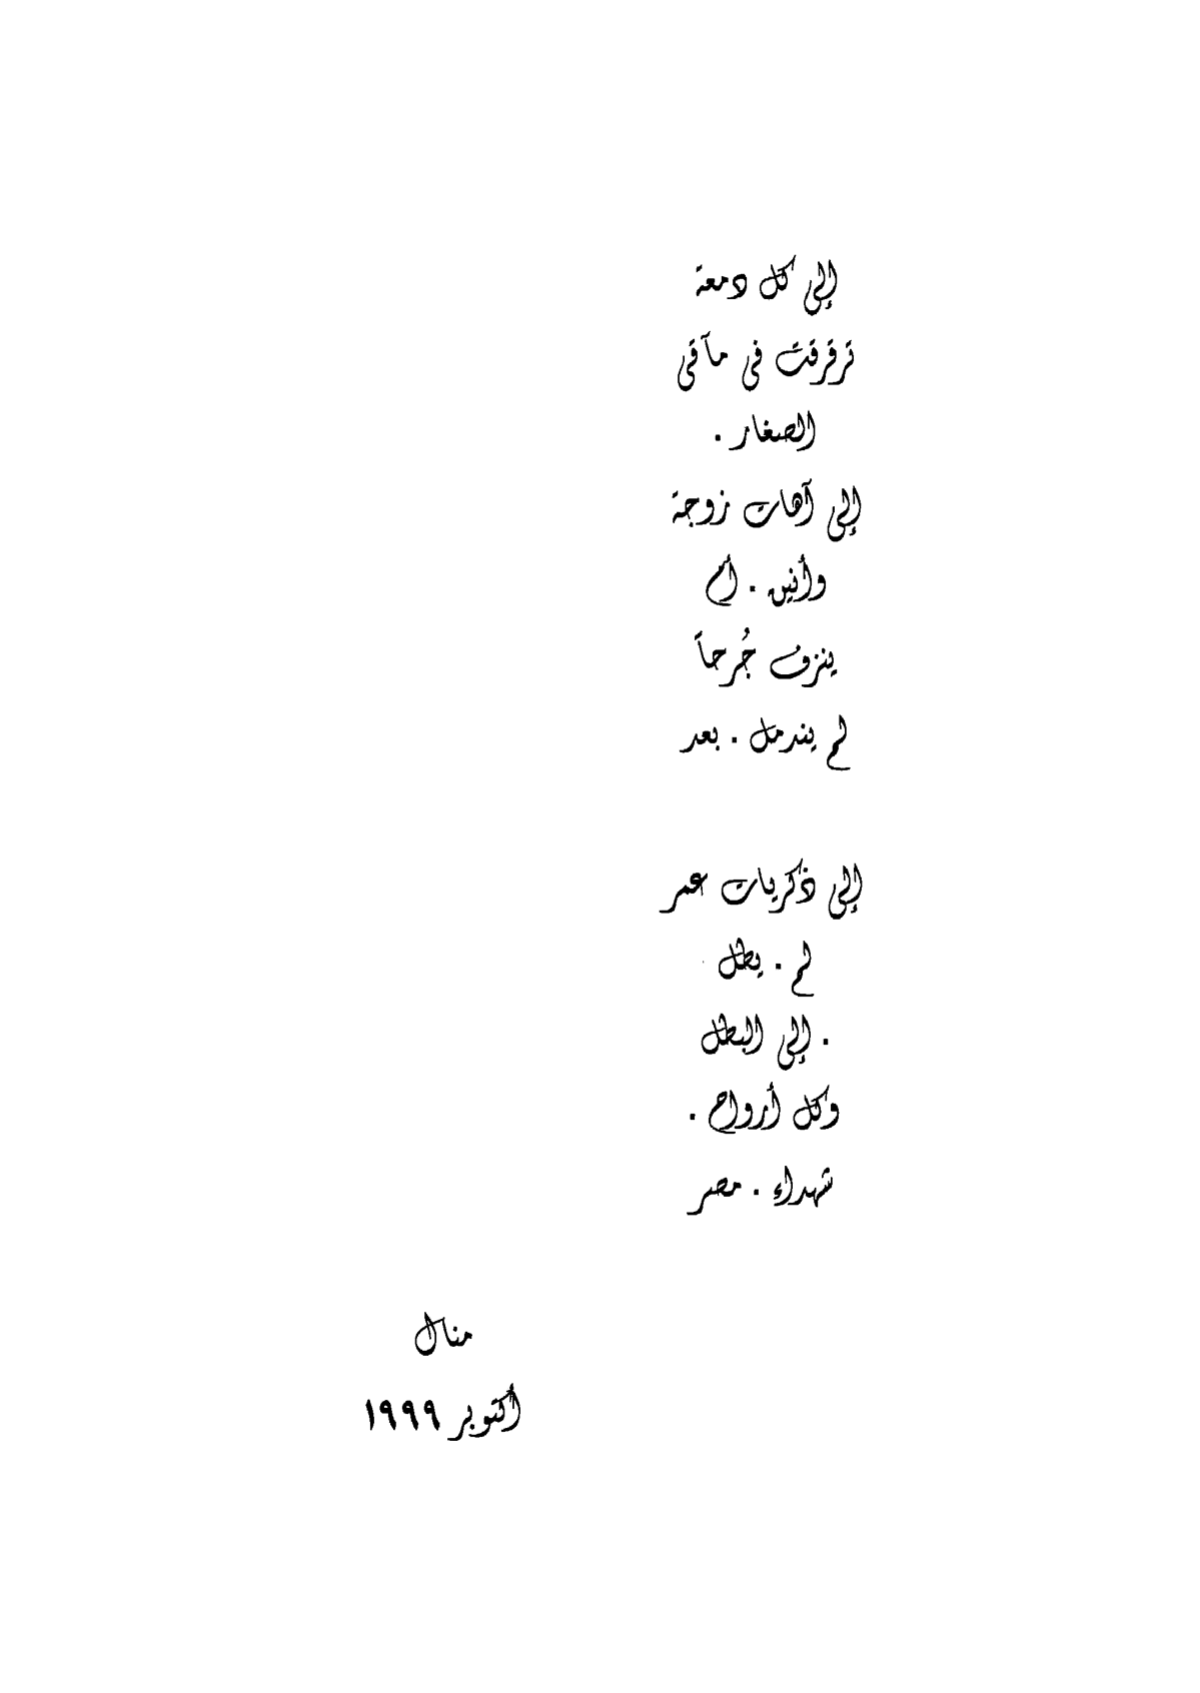 إلى كل دمعة
ترقرقت فى مآقى
الصغار .
إلى آهات زوجة
وأنين . أم
ينزف جُرحاً
لم يندمل . بعد
إلى ذكريات عمر
لم . يطل
. إلى البطل
وكل أرواح .
شهداء . مصر
منال
أكتوبر ١٩٩٩